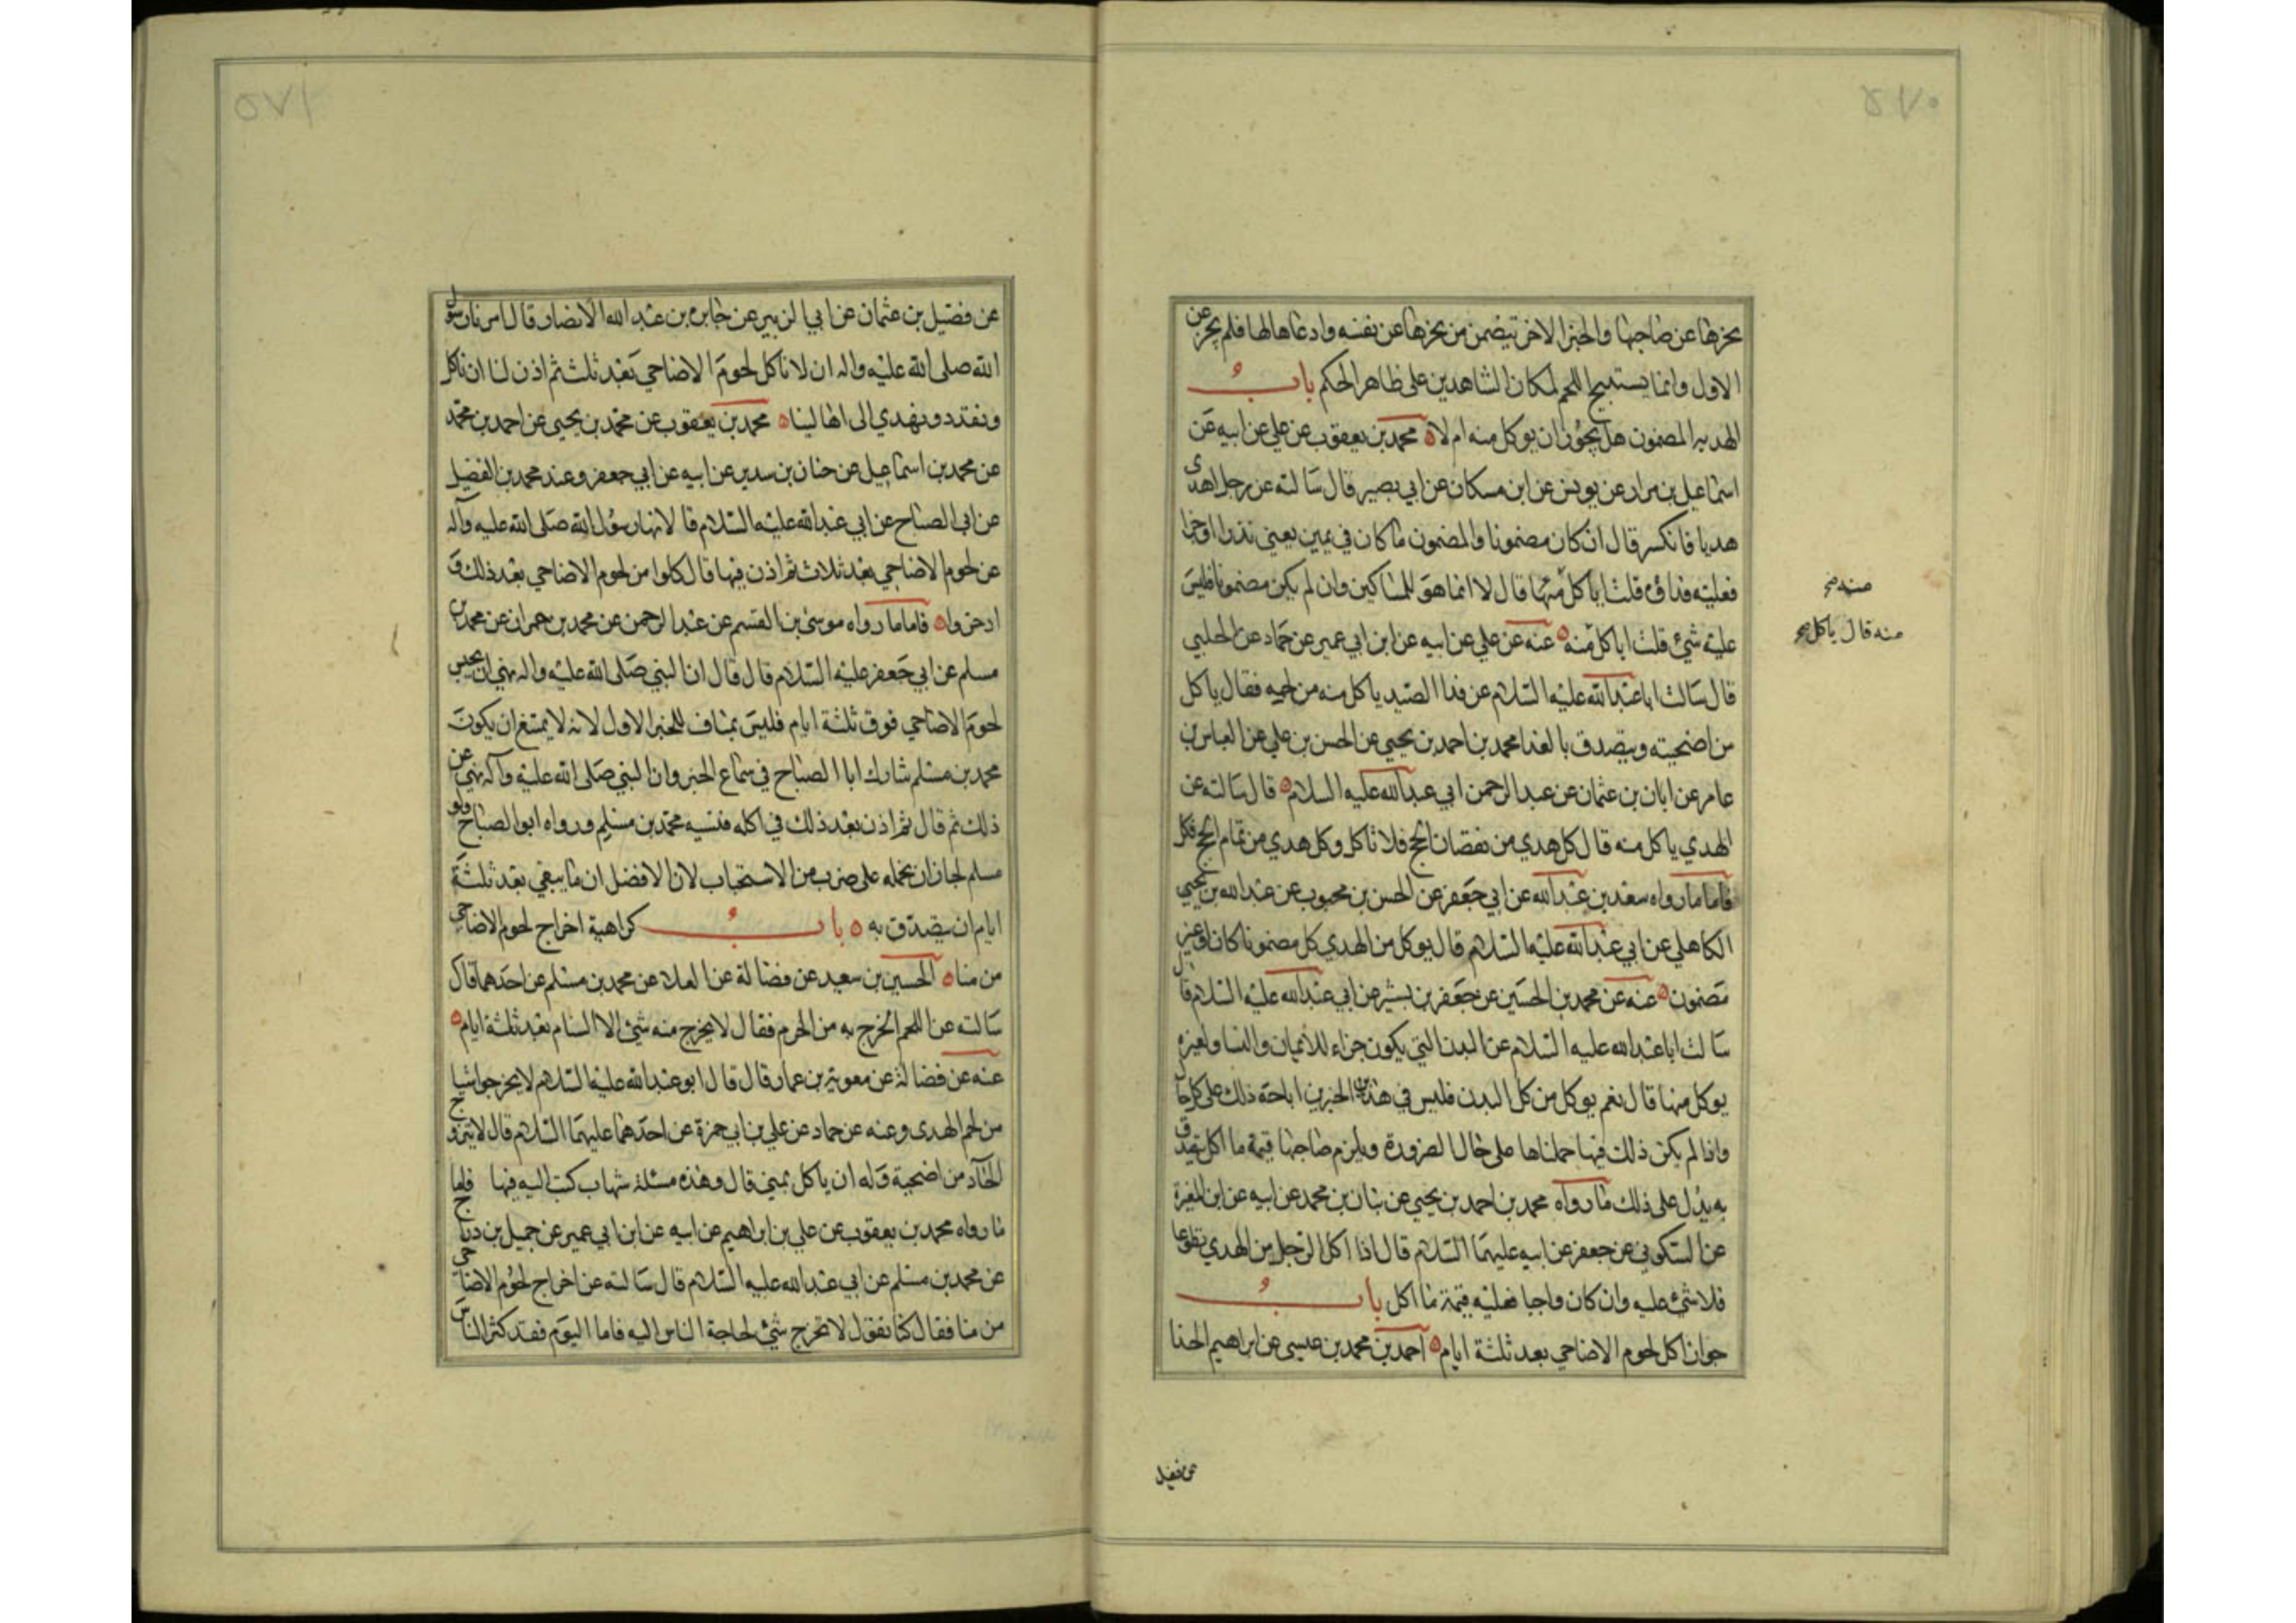 ٥٧٠
ينحرها عن صاحبها والخبر الاخر تيضمن من ينحرها عن نفسه وادعاها لها فلم يجز عن
الاول وانما يستبيح اللحم لمكان الشاهدين على ظاهر الحكم باب
الهديه المضمون هل يجوز ان يوكل منه ام لا ٥ محمد بن يعقوب عن علي عن ابيه عن
اسماعيل بن مرار عن يونس عن ابن مسكان عن ابي بصير قال سالته عن رجل اهدى
هديا فانكسر قال ان كان مضمونا والمضمون ما كان في يمين يعني نذرا او جزا
فعليه فداؤه قلت اياكل منها قال لا انما هو للمساكين وان لم يكن مضمونا فليس
عليه شئ قلت اياكل منه ٥ عنه عن علي عن ابيه عن ابن ابي عمير عن حماد عن الحلبي
منه قال ياكل صح
قال سالت ابا عبدالله عليه السلام عن فدا الصيد ياكل منه من لحمه فقال ياكل
من اضحيته ويتصدق بالفدا محمد بن احمد بن يحيى عن الحسن بن علي عن العباس بن
عامر عن ابان بن عثمان عن عبد الرحمن ابي عبدالله عليه السلام ٥ قال سالته عن
الهدي ياكل منه قال كل هدي من نقصان الحج فلا تاكل وكل هدي من تمام الحج فكل
فاما ما رواه سعد بن عبدالله عن ابي جعفر عن الحسن بن محبوب عن عبدالله بن يحيى
الكاهلي عن ابي عبدالله عليه السلام قال يوكل من الهدي كل مضمونا كان او غير
مضمون ٥ عنه عن محمد بن الحسين عن جعفر بن بشير عن ابي عبدالله عليه السلام قال
سالت ابا عبدالله عليه السلام عن البدن التي يكون جزاء للايمان والنسا ولغيره
يوكل منها قال نعم يوكل من كل البدن فليس في هذين الخبرين اباحة ذلك على كل حال
واذا لم يكن ذلك فيها حملناها على حال الضرورة ويلزم صاحبها قيمة ما اكل تيصدق
به يدل على ذلك ما رواه محمد بن احمد بن يحيى عن بنان بن محمد عن ابيه عن ابن المغيرة
عن السكوني عن جعفر عن ابيه عليهما السلام قال اذا اكل الرجل من الهدي تطوعا
فلا شئ عليه وان كان واجبا فعليه قيمة ما اكل باب
جواز اكل لحوم الاضاحي بعد ثلثة ايام ٥ احمد بن محمد بن عيسى عن ابراهيم الحذا
عن فضيل
٥٧١
عن فضيل بن عثمان عن ابي الزبير عن جابر بن عبد الله الانصار قال امرنا رسول
الله صلى الله عليه واله ان لا ناكل لحوم الاضاحي بعد ثلث ثم اذن لنا ان ناكل
ونقدد ونهدي الى اهالينا ٥ محمد بن يعقوب عن محمد بن يحيى عن احمد بن محمد
عن محمد بن اسماعيل عن حنان بن سدير عن ابيه عن ابي جعفر وعند محمد بن الفضيل
عن ابي الصباح عن ابي عبدالله عليه السلام قالا نها رسول الله صلى الله عليه وآله
عن لحوم الاضاحي بعد ثلاث ثم اذن فيها قال كلوا من لحوم الاضاحي بعد ذلك و
ادخروا ٥ فاما ما رواه موسى بن القسم عن عبد الرحمن عن محمد بن حمران عن محمد بن
مسلم عن ابي جعفر عليه السلام قال قال ان النبي صلى الله عليه واله نهي ان يحبس
لحوم الاضاحي فوق ثلثة ايام فليس بمناف للخبر الاول لانه لا يمتنع ان يكون
محمد بن مسلم شارك ابا الصباح في سماع الخبر وان النبي صلى الله عليه وآله نهي عن
ذلك ثم قال ثم اذن بعد ذلك في اكله فنسيه محمد بن مسلم ورواه ابو الصباح ولو
مسلم لجاز ان نحمله على ضرب من الاستحباب لان الافضل ان ما يبقي بعد ثلثة
ايام ان يتصدق به ٥ باب كراهية اخراج لحوم الاضاحي
من منا ٥ الحسين بن سعيد عن فضالة عن العلا عن محمد بن مسلم عن احدهما قال
سالته عن اللحم ايخرج به من الحرم فقال لا يخرج منه شئ الا السنام بعد ثلثة ايام ٥
عنه عن فضالة عن معوية بن عمار قال قال ابو عبدالله عليه السلام لا يخرجوا شيا
من لحم الهدى وعنه عن حماد عن علي بن ابي حمزة عن احدهما عليهما السلام قال لا يتزود
الحاج من اضحية وله ان ياكل بمنى قال وهذه مسئلة شهاب كتب اليه فيها فاما
ما رواه محمد بن يعقوب عن علي بن ابراهيم عن ابيه عن ابن ابي عمير عن جميل بن دراج
عن محمد بن مسلم عن ابي عبدالله عليه السلام قال سالته عن اخراج لحوم الاضاحي
من منا فقال كنا نقول لا تخرج شئ لحاجة الناس اليه فاما اليوم فقد كثر الناس